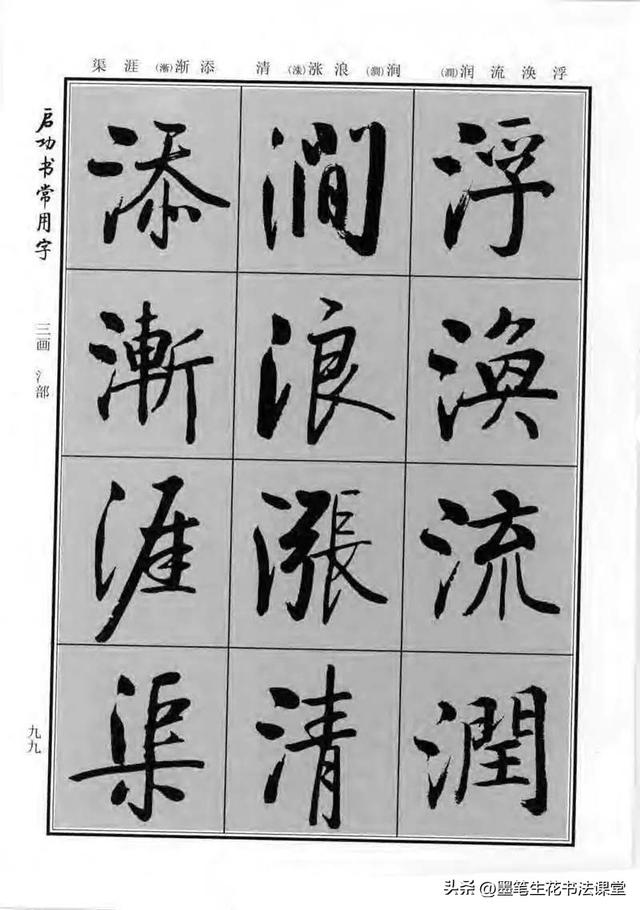 浮涣流润(潤) 涧(澗)浪涨(漲)清 添渐(漸)涯渠
浮涣流潤
澗浪漲清
添漸涯渠
启功书常用字
三画 氵部
九九
头条 @墨笔生花书法课堂